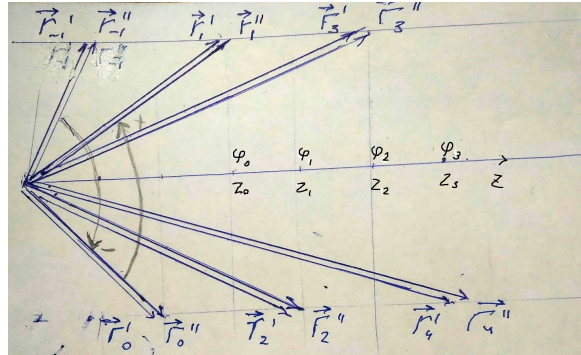 r⃗₋₁' r⃗₋₁'' r⃗₁' r⃗₁'' r⃗₃' r⃗₃''
+
φ₀ φ₁ φ₂ φ₃
z₀ z₁ z₂ z₃ z
-
r⃗₀' r⃗₀'' r⃗₂' r⃗₂'' r⃗₄' r⃗₄''